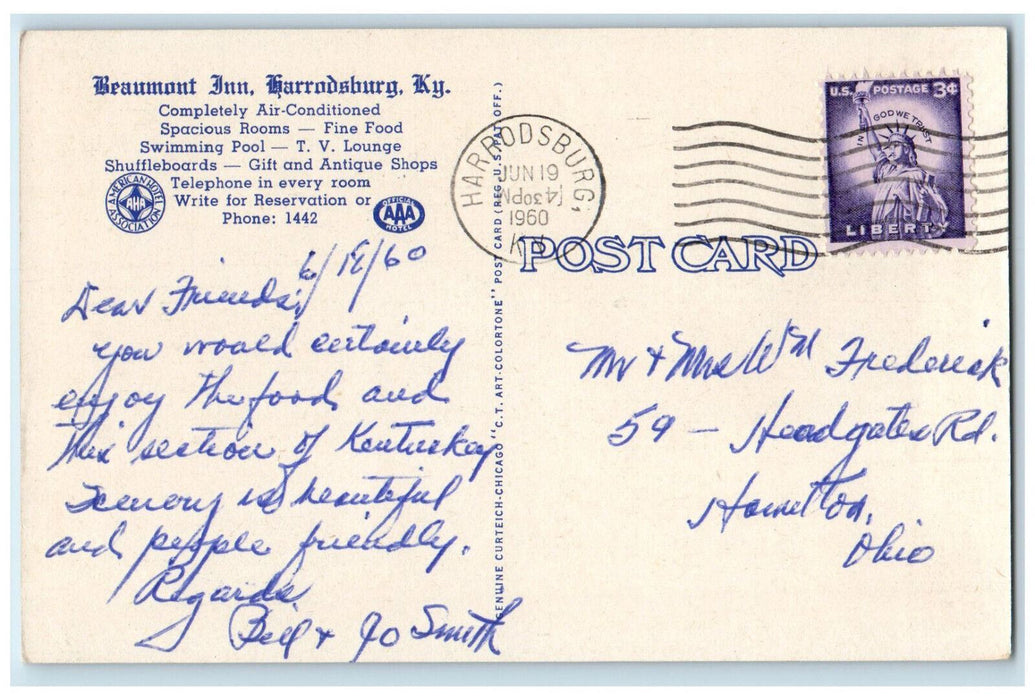 Beaumont Inn, Harrodsburg, Ky.
Completely Air-Conditioned
Spacious Rooms — Fine Food
Swimming Pool — T. V. Lounge
Shuffleboards — Gift and Antique Shops
Telephone in every room
Write for Reservation or
Phone: 1442
AMERICAN HOTEL ASSOCIATION
AHA
OFFICIAL
AAA
HOTEL
6/18/60
Dear Friends:
you would certainly
enjoy the food, and
this section of Kentuckey
Scenery is beautiful
and people friendly.
Regards
Bill + Jo Smith
GENUINE CURTEICH-CHICAGO "C.T. ART-COLORTONE" POST CARD (REG. U.S. PAT. OFF.)
HARRODSBURG,
JUN 19
430PM
1960
KY.
POST CARD
U.S. POSTAGE 3¢
IN GOD WE TRUST
LIBERTY
Mr + Mrs Wm Frederick
59 — Headgates Rd.
Hamilton,
Ohio